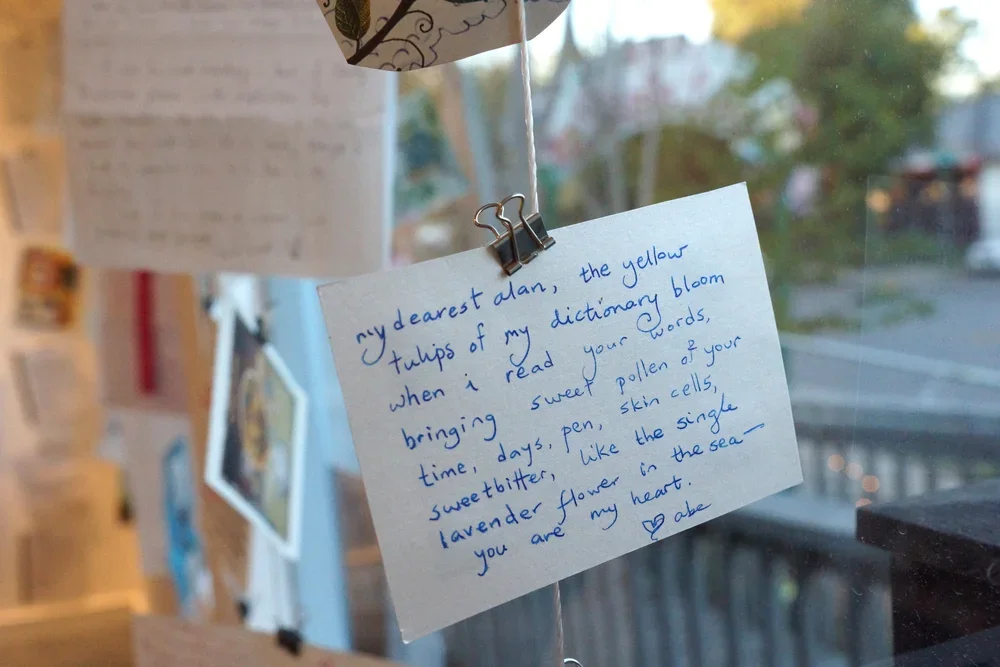 my dearest alan, the yellow
tulips of my dictionary bloom
when i read your words,
bringing sweet pollen of your
time, days, pen, skin cells,
sweetbitter, like the single
lavender flower in the sea—
you are my heart.
♡ abe